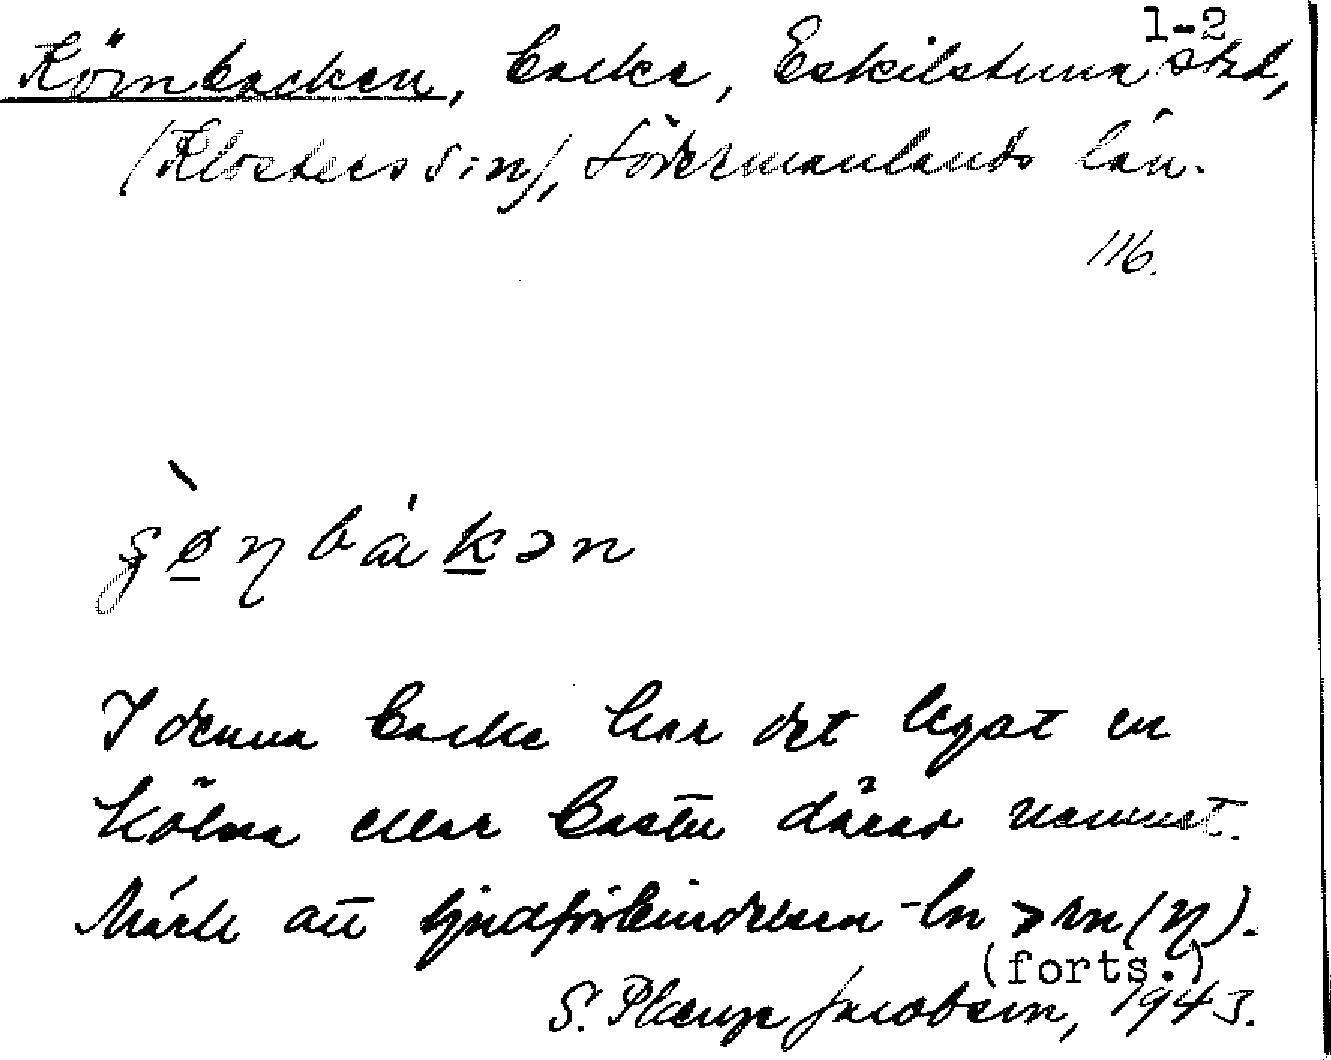 1-2
Körnbacken, backe, Eskilstuna stad,
(Klosters s:n), Södermanlands län.
116.
I denna backe har det legat en
kölna eller bastu därav namnet.
Märk att ljudförbindelsen -ln > rn (η).
(forts.)
S. Plærup Jacobsen, 1943.